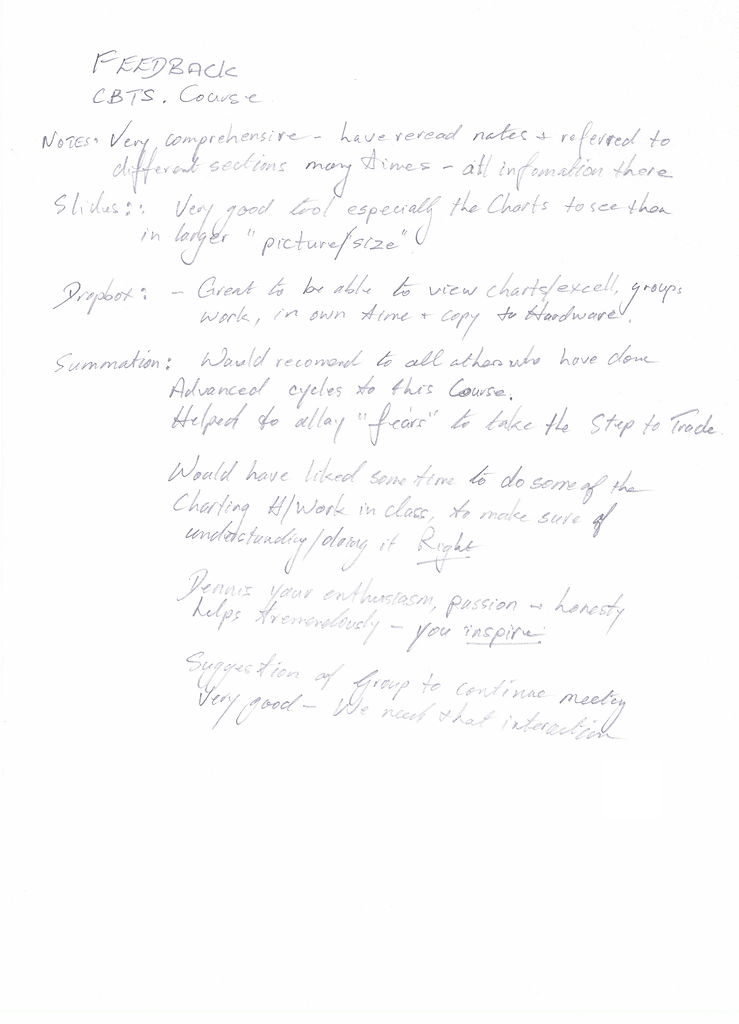 FEEDBACK
CBTS. Course
NOTES: Very comprehensive - have reread notes + referred to
different sections many times - all infomation there
Slides:: Very good tool especially the Charts to see them
in larger "picture/size"
Dropbox: - Great to be able to view charts/excell, groups
work, in own time + copy to Hardware.
Summation: Would recomend to all others who have done
Advanced cycles to this Course.
Helped to allay "fears" to take the Step to Trade.
Would have liked some time to do some of the
Charting H/Work in class, to make sure of
understanding/doing it Right
Dennis your enthusiasm, passion + honesty
helps tremendously - you inspire.
Suggestion of Group to continue meeting
Very good - We need that interaction